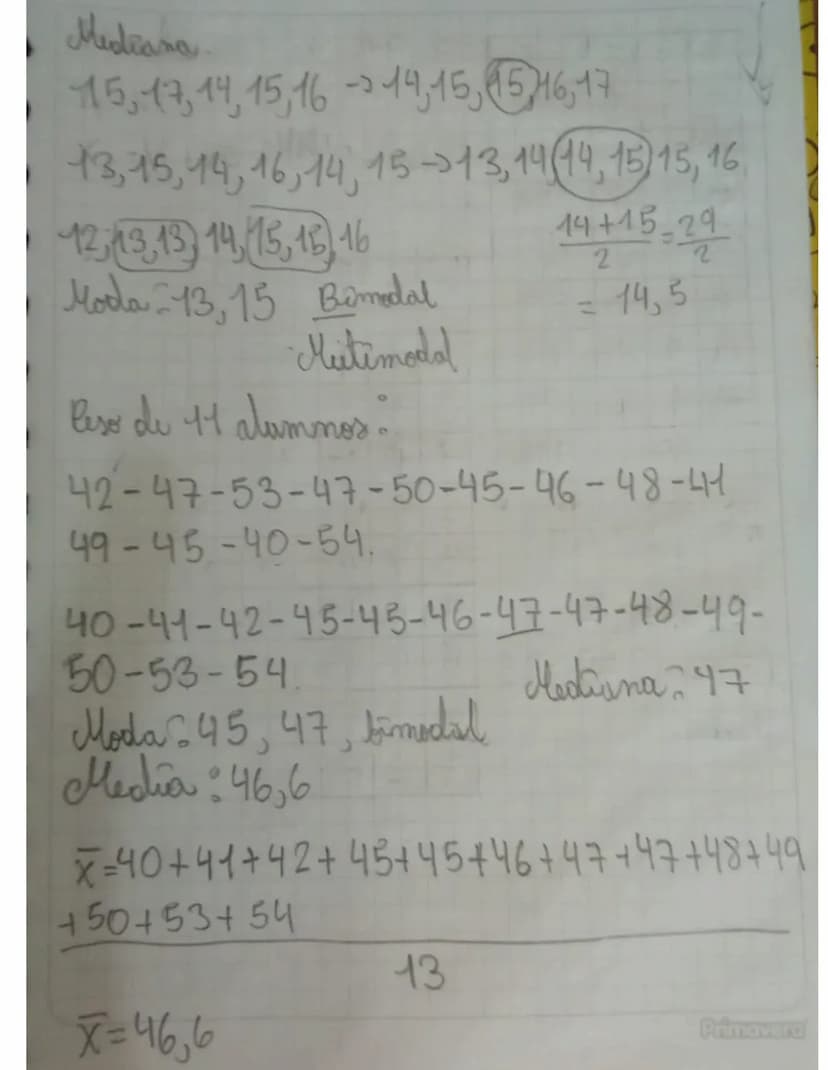 Mediana.
15, 17, 14, 15, 16 → 14, 15, 15, 16, 17
13, 15, 14, 16, 14, 15 → 13, 14, 14, 15, 15, 16
12, 13, 13, 14, 15, 15, 16
14 + 15 / 2 = 29 / 2
Moda: 13, 15 Bimodal
= 14,5
Multimodal
Peso de 11 alumnos:
42 - 47 - 53 - 47 - 50 - 45 - 46 - 48 - 41
49 - 45 - 40 - 54.
40 - 41 - 42 - 45 - 45 - 46 - 47 - 47 - 48 - 49 -
50 - 53 - 54.
Mediana: 47
Moda: 45, 47, bimodal
Media: 46,6
x̄ = 40 + 41 + 42 + 45 + 45 + 46 + 47 + 47 + 48 + 49
+ 50 + 53 + 54
13
x̄ = 46,6
Primavera